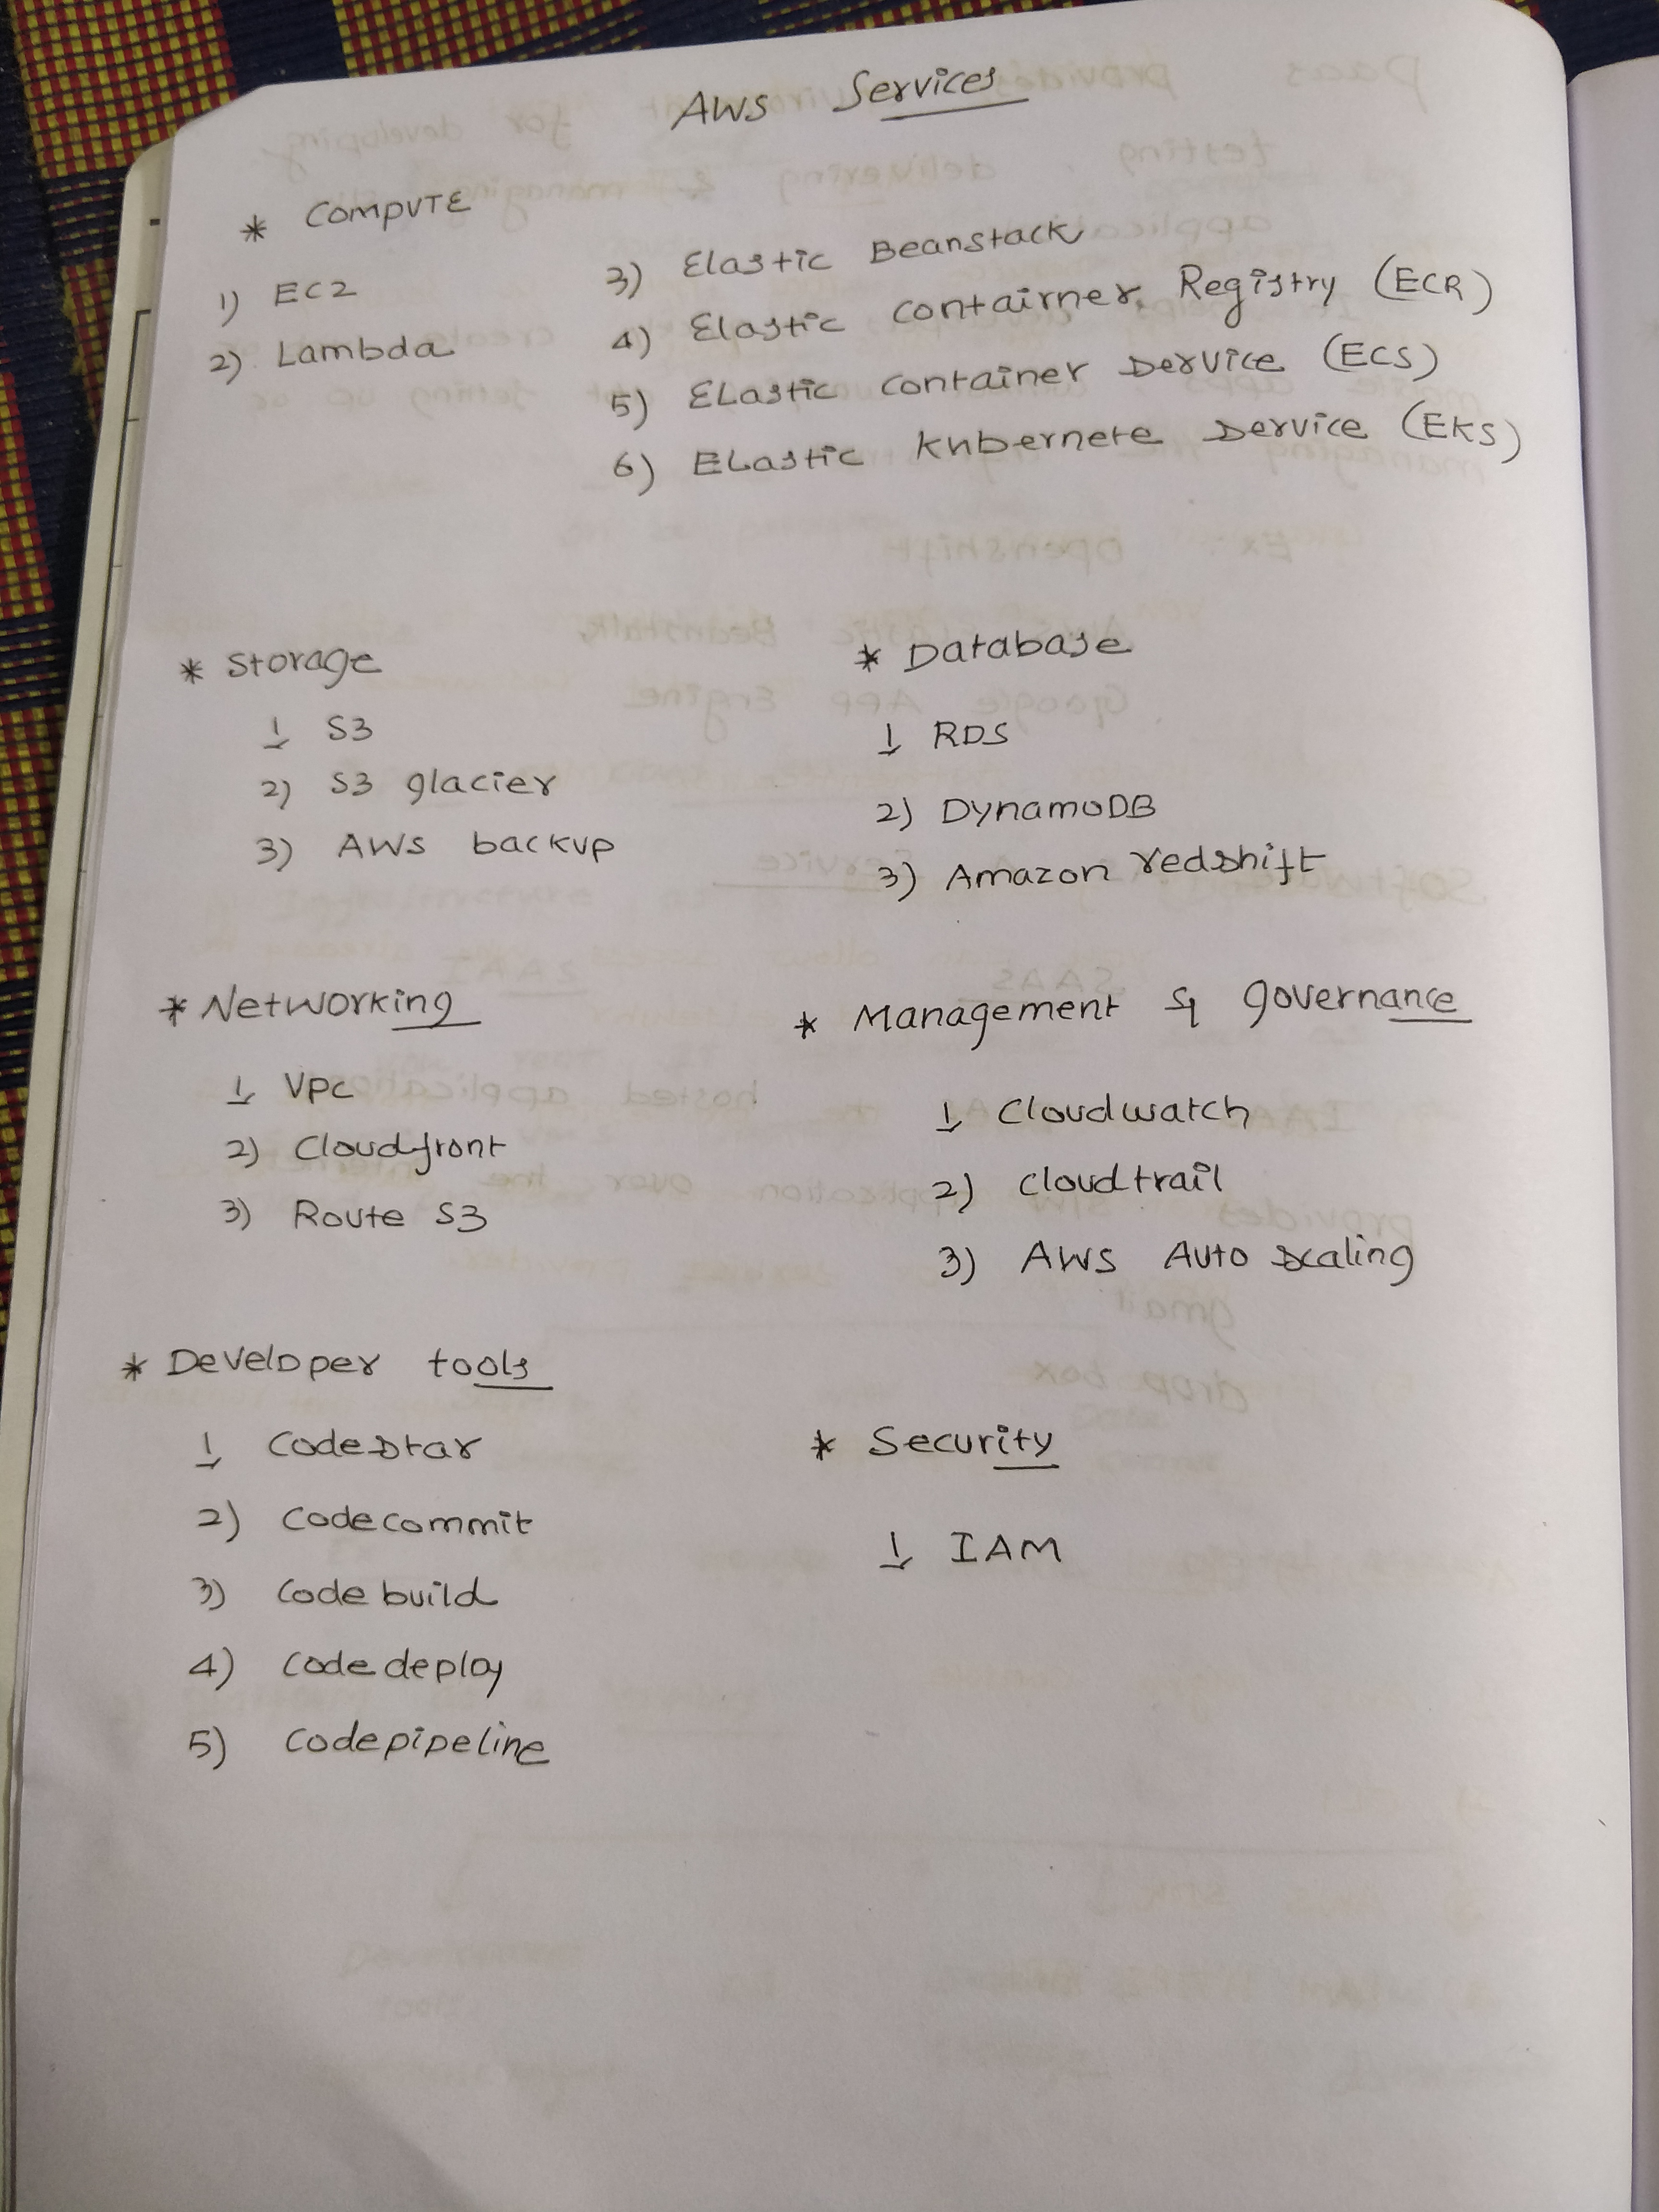 AWS Services
* COMPUTE
1) EC2
2) Lambda
3) Elastic Beanstack
4) Elastic Contairner Registry (ECR)
5) Elastic Container Service (ECS)
6) Elastic Kubernete Service (EKS)
* Storage
1) S3
2) S3 glacier
3) AWS backup
* Database
1) RDS
2) DynamoDB
3) Amazon redshift
* Networking
1) Vpc
2) Cloudfront
3) Route S3
* Management & governance
1) Cloudwatch
2) cloudtrail
3) AWS Auto scaling
* Developer tools
1) Codestar
2) Codecommit
3) Code build
4) Code deploy
5) Codepipeline
* Security
1) IAM